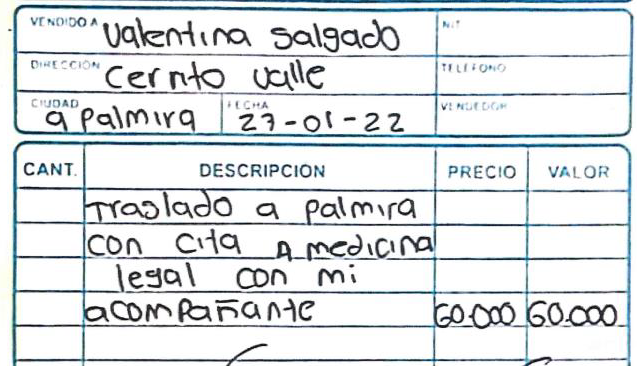 VENDIDO A Valentina Salgado NIT
DIRECCIÓN Cerrito Valle TELEFONO
CIUDAD a Palmira FECHA 27-01-22 VENDEDOR
CANT. DESCRIPCION PRECIO VALOR
Traslado a Palmira
con cita A medicina
legal con mi
acompañante 60.000 60.000